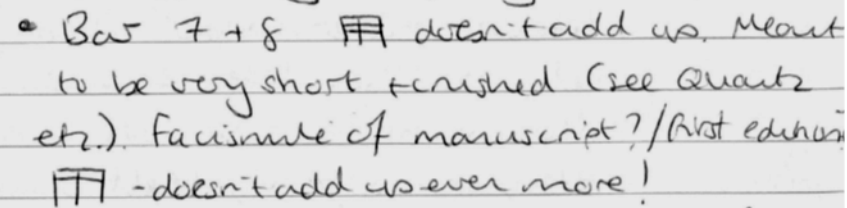 • Bar 7 + 8 doesn't add up. Meant
to be very short + crushed (see Quantz
etc.). Facismile of manuscript?/first edition
- doesn't add up even more!